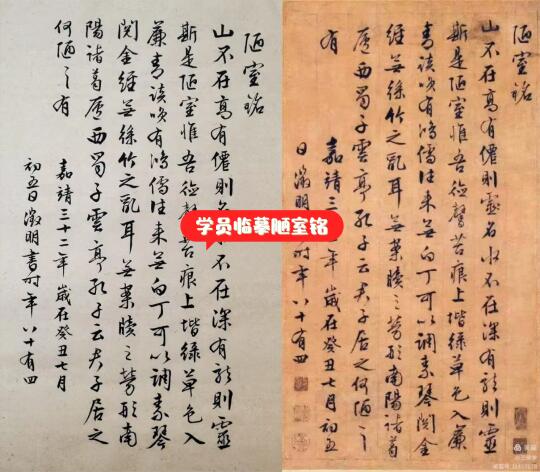 陋室銘
山不在高有僊則名不在深有龍則靈
斯是陋室惟吾德馨苔痕上堦綠草色入
簾青談笑有鴻儒往来無白丁可以調素琴
閱金經無絲竹之亂耳無案牘之勞形南
陽諸葛廬西蜀子雲亭孔子云夫子居之
何陋之有
嘉靖三十二年歲在癸丑七月
初五日徵明書時年八十有四
学员临摹陋室铭
陋室銘
山不在高有僊則靈名水不在深有龍則靈
斯是陋室惟吾德馨苔痕上堦綠草色入簾
青談笑有鴻儒往来無白丁可以調素琴閱金
經無絲竹之亂耳無案牘之勞形南陽諸葛
廬西蜀子雲亭孔子云夫子居之何陋之
有
嘉靖三年歲在癸丑七月初五
日徵明時年八十有四